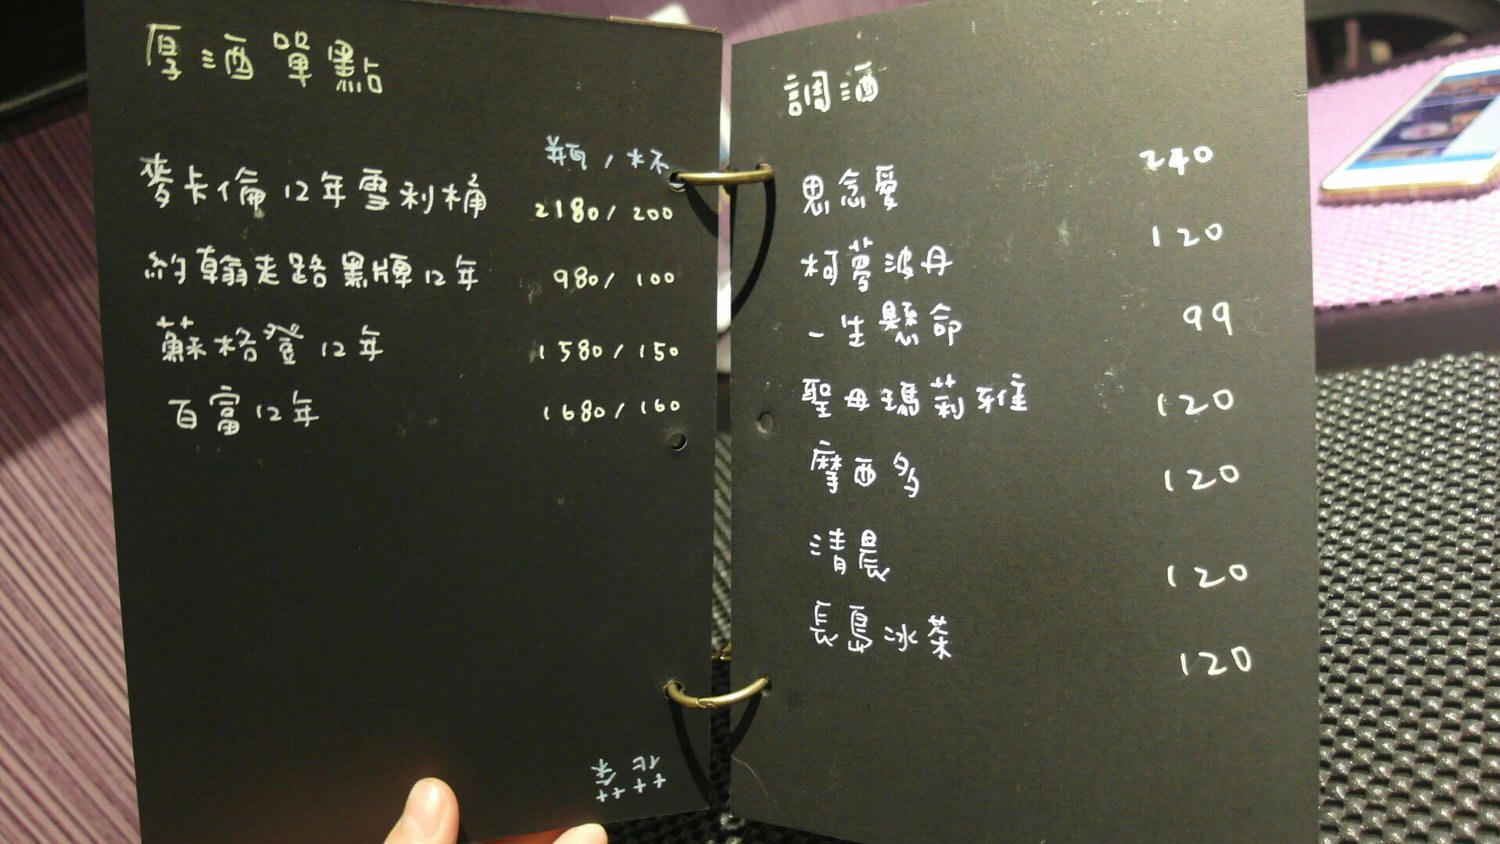 厚酒單點
瓶/杯
麥卡倫12年雪利桶 2180/200
約翰走路黑牌12年 980/100
蘇格登12年 1580/150
百富12年 1680/160
花茶
調酒
思念愛 240
柯夢波丹 120
一生懸命 99
聖母瑪莉雅 120
摩西多 120
清晨 120
長島冰茶 120